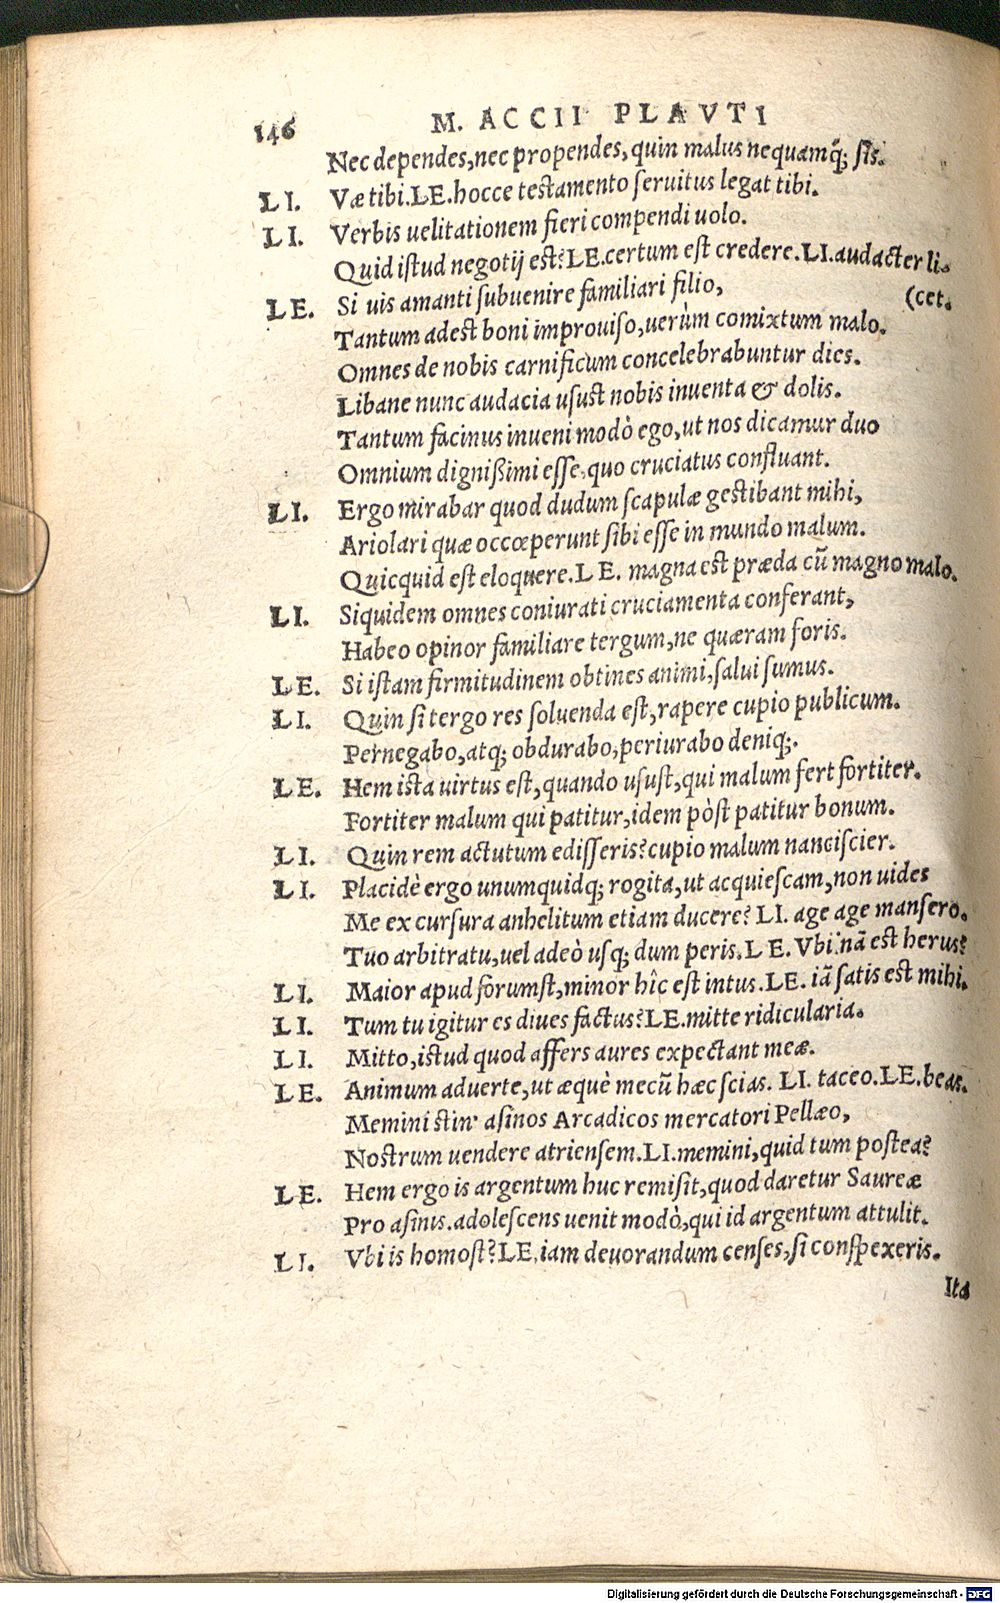 146 M. ACCII PLAVTI
Nec dependes,nec propendes, quin malus nequamq́; sis.
LI. Væ tibi.LE.hocce testamento seruitus legat tibi.
LI. Verbis uelitationem fieri compendi uolo.
Quid istud negotij est?LE.certum est credere.LI.audacter li-
(cet.
LE. Si uis amanti subuenire familiari filio,
Tantum adest boni improuiso,uerùm comixtum malo.
Omnes de nobis carnificum concelebrabuntur dies.
Libane nunc audacia usust nobis inuenta & dolis.
Tantum facinus inueni modò ego,ut nos dicamur duo
Omnium dignißimi esse,quo cruciatus confluant.
LI. Ergo mirabar quod dudum scapulæ gestibant mihi,
Ariolari quæ occœperunt sibi esse in mundo malum.
Quicquid est eloquere.LE. magna est præda cũ magno malo.
LI. Siquidem omnes coniurati cruciamenta conferant,
Habeo opinor familiare tergum,ne quæram foris.
LE. Si istam firmitudinem obtines animi,salui sumus.
LI. Quin si tergo res soluenda est,rapere cupio publicum.
Pernegabo,atq; obdurabo,periurabo deniq;.
LE. Hem ista uirtus est,quando usust,qui malum fert fortiter.
Fortiter malum qui patitur,idem pòst patitur bonum.
LI. Quin rem actutum edisseris?cupio malum nanciscier.
LI. Placidè ergo unumquidq; rogita,ut acquiescam,non uides
Me ex cursura anhelitum etiam ducere? LI. age age mansero.
Tuo arbitratu,uel adeò usq; dum peris.LE. Vbi nã est herus?
LI. Maior apud forumst,minor hîc est intus.LE. iã satis est mihi.
LI. Tum tu igitur es diues factus?LE.mitte ridicularia.
LI. Mitto,istud quod affers aures expectant meæ.
LE. Animum aduerte,ut æquè mecũ hæc scias. LI. taceo.LE.beas.
Meministin' asinos Arcadicos mercatori Pellæo,
Nostrum uendere atriensem.LI.memini,quid tum postea?
LE. Hem ergo is argentum huc remisit,quod daretur Saureæ
Pro asinis.adolescens uenit modò,qui id argentum attulit.
LI. Vbi is homost?LE.iam deuorandum censes,si conspexeris.
Ita
Digitalisierung gefördert durch die Deutsche Forschungsgemeinschaft - DFG